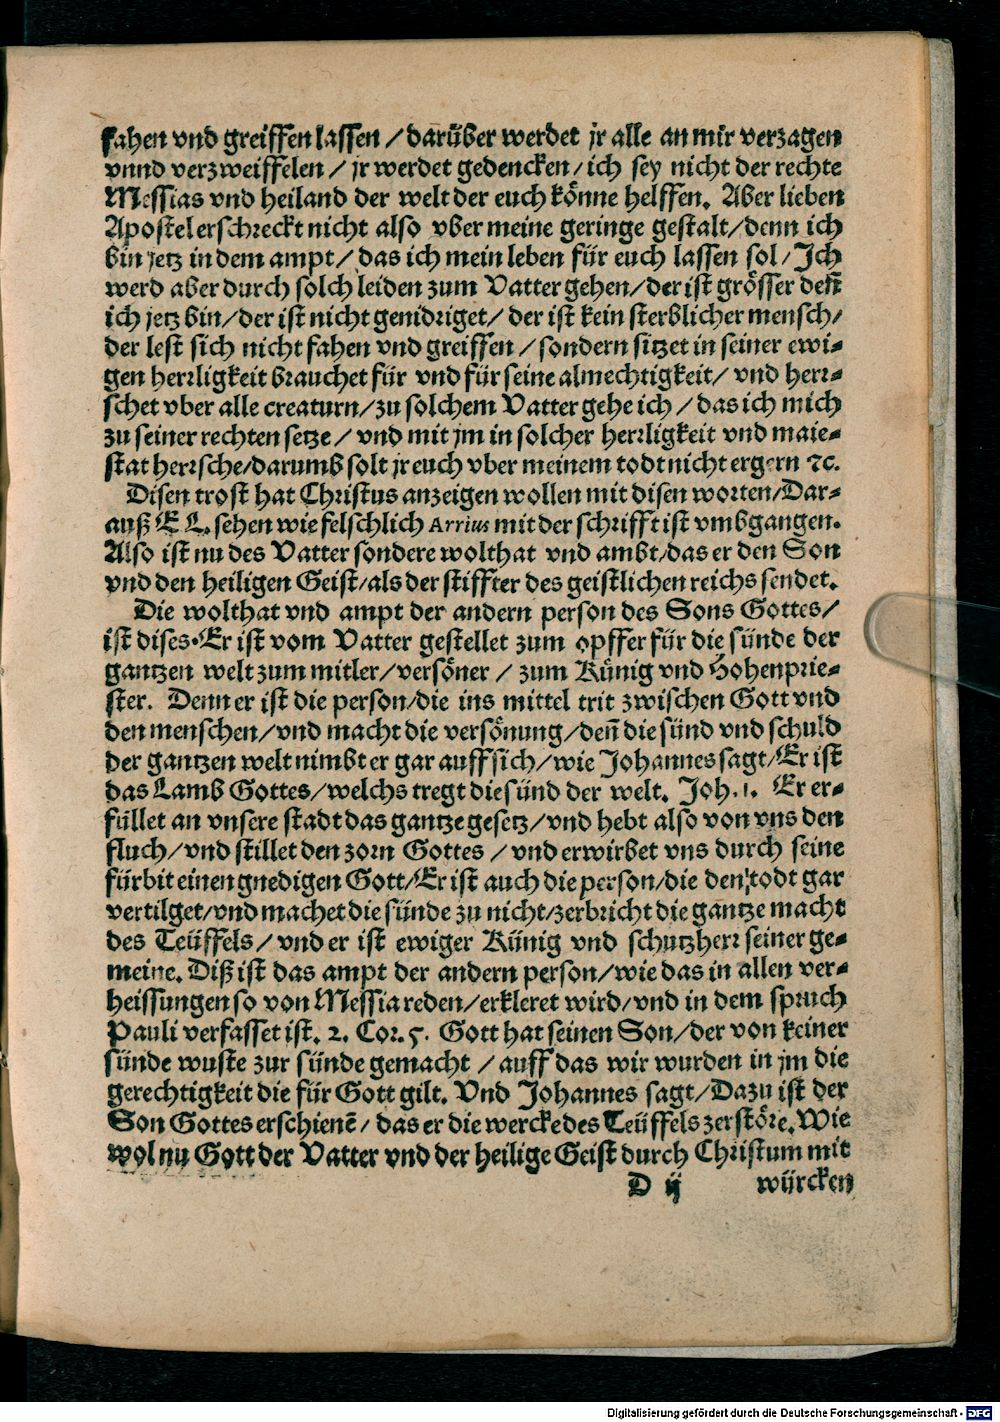 fahen vnd greiffen lassen / darüber werdet jr alle an mir verzagen
vnnd verzweiffelen / jr werdet gedencken / ich sey nicht der rechte
Messias vnd heiland der welt der euch könne helffen. Aber lieben
Apostel erschreckt nicht also vber meine geringe gestalt / denn ich
bin jetz in dem ampt / das ich mein leben für euch lassen sol / Ich
werd aber durch solch leiden zum Vatter gehen / der ist grösser deñ
ich jetz bin / der ist nicht genidriget / der ist kein sterblicher mensch /
der lest sich nicht fahen vnd greiffen / sondern sitzet in seiner ewi-
gen herrligkeit brauchet für vnd für seine almechtigkeit / vnd herr-
schet vber alle creaturn / zu solchem Vatter gehe ich / das ich mich
zu seiner rechten setze / vnd mit jm in solcher herrligkeit vnd maie-
stat herrsche / darumb solt jr euch vber meinem todt nicht ergern ꝛc.
Disen trost hat Christus anzeigen wollen mit disen worten / Dar-
auß E L. sehen wie felschlich Arrius mit der schrifft ist vmbgangen.
Also ist nu des Vatter sondere wolthat vnd ambt / das er den Son
vnd den heiligen Geist / als der stiffter des geistlichen reichs sendet.
Die wolthat vnd ampt der andern person des Sons Gottes /
ist dises. Er ist vom Vatter gestellet zum opffer für die sünde der
gantzen welt zum mitler / versöner / zum Künig vnd Hohenprie-
ster. Denn er ist die person / die ins mittel trit zwischen Gott vnd
den menschen / vnd macht die versönung / deñ die sünd vnd schuld
der gantzen welt nimbt er gar auff sich / wie Johannes sagt / Er ist
das Lamb Gottes / welchs tregt die sünd der welt. Joh. 1. Er er-
füllet an vnsere stadt das gantze gesetz / vnd hebt also von vns den
fluch / vnd stillet den zorn Gottes / vnd erwirbet vns durch seine
fürbit einen gnedigen Gott / Er ist auch die person / die den todt gar
vertilget / vnd machet die sünde zu nicht / zerbricht die gantze macht
des Teüffels / vnd er ist ewiger Künig vnd schutzherr seiner ge-
meine. Diß ist das ampt der andern person / wie das in allen ver-
heissungen so von Messia reden / erkleret wird / vnd in dem spruch
Pauli verfasset ist. 2. Cor. 5. Gott hat seinen Son / der von keiner
sünde wuste zur sünde gemacht / auff das wir wurden in jm die
gerechtigkeit die für Gott gilt. Vnd Johannes sagt / Dazu ist der
Son Gottes erschienē / das er die wercke des Teüffels zerstöre. Wie
wol nu Gott der Vatter vnd der heilige Geist durch Christum mit
D ij würcken
Digitalisierung gefördert durch die Deutsche Forschungsgemeinschaft - DFG